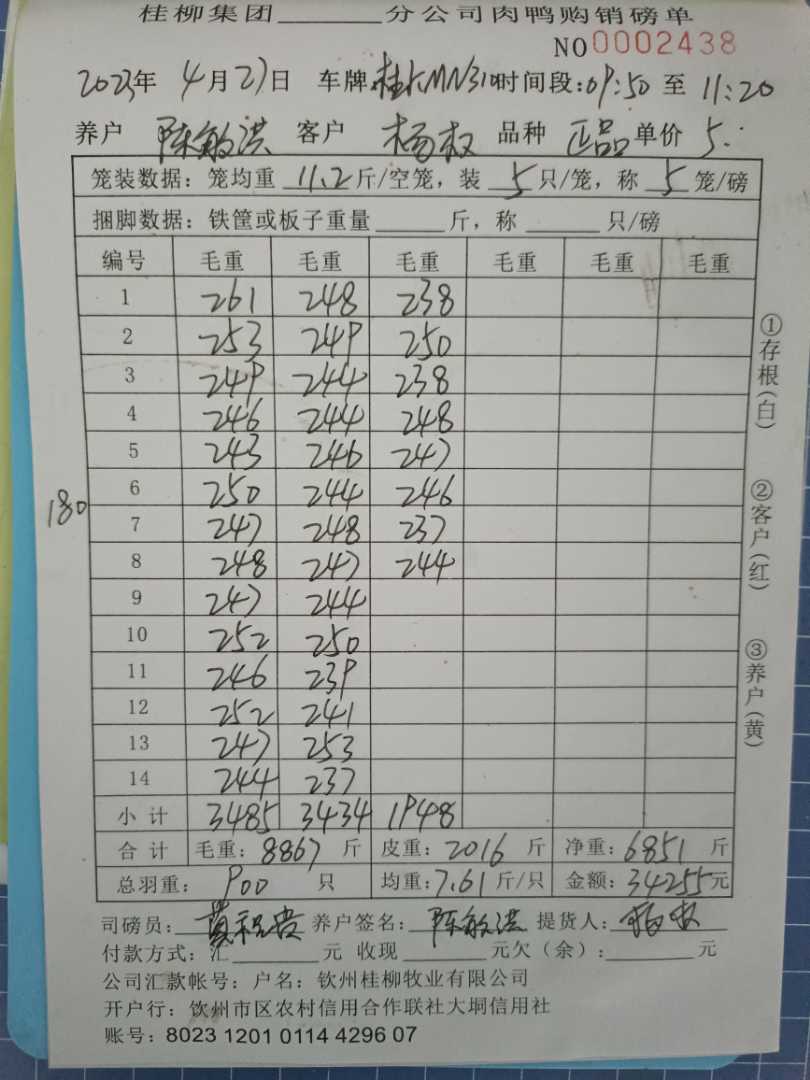 桂柳集团______分公司肉鸭购销磅单
NO 0002438
2023年 4月27日 车牌:桂KMN310 时间段:09:50 至 11:20
养户 陈敏洪 客户 杨权 品种 正品 单价 5.
笼装数据:笼均重 11.2 斤/空笼,装 5 只/笼,称 5 笼/磅
捆脚数据:铁筐或板子重量______斤,称______只/磅
编号 毛重 毛重 毛重 毛重 毛重 毛重
1 261 248 238
2 253 249 250
3 249 244 238
4 246 244 248
5 243 246 247
180
6 250 244 246
7 247 248 237
8 248 247 244
9 247 244
10 252 250
11 246 239
12 252 241
13 247 253
14 244 237
小计 3485 3434 1948
合计 毛重:8867 斤 皮重:2016 斤 净重:6851 斤
总羽重:900 只 均重:7.61 斤/只 金额:34255元
司磅员: 养户签名:陈敏洪 提货人:杨权
付款方式:汇______元 收现______元欠(余):______元
公司汇款帐号:户名:钦州桂柳牧业有限公司
开户行:饮州市区农村信用合作联社大垌信用社
账号:8023 1201 0114 4296 07
①存根(白)
②客户(红)
③养户(黄)